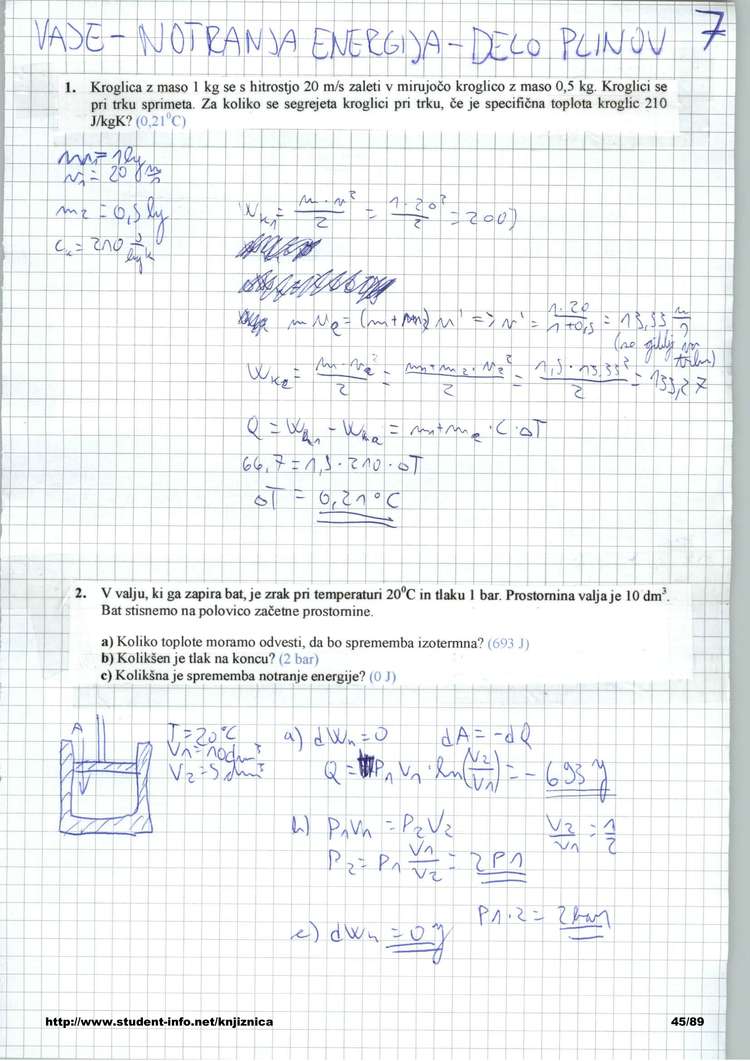 VAJE - NOTRANJA ENERGIJA - DELO PLINOV 7
1. Kroglica z maso 1 kg se s hitrostjo 20 m/s zaleti v mirujočo kroglico z maso 0,5 kg. Kroglici se
pri trku sprimeta. Za koliko se segrejeta kroglici pri trku, če je specifična toplota kroglic 210
J/kgK? (0,21⁰C)
m1 = 1kg
v1 = 20 m/s
m2 = 0,5 kg
Wk1 = m·v²/2 = 1·20²/2 = 200 J
v' = 1·20/1+0,5 = 13,33 m/s
= 1,5·13,33²/2 = 133,27
Q = Wk1 - Wk2 = m1+m2·C·ΔT
66,7 = 1,5·210·ΔT
ΔT = 0,21°C
2. V valju, ki ga zapira bat, je zrak pri temperaturi 20⁰C in tlaku 1 bar. Prostornina valja je 10 dm³.
Bat stisnemo na polovico začetne prostornine.
a) Koliko toplote moramo odvesti, da bo sprememba izotermna? (693 J)
b) Kolikšen je tlak na koncu? (2 bar)
c) Kolikšna je sprememba notranje energije? (0 J)
A
T = 20°C
V1 = 10dm³
V2 = 5 dm³
a) dWn = 0 dA = -dQ
Q = P1V1·ln(V2/V1) = - 693 J
b) P1V1 = P2V2 V2/V1 = 1/2
P2 = P1 V1/V2 = 2P1
P1·2 = 2bar
c) dWn = 0 J
http://www.student-info.net/knjiznica 45/89